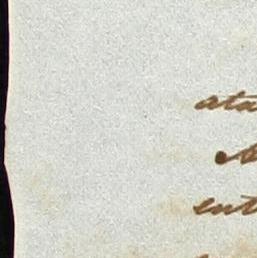 ata
A
ent